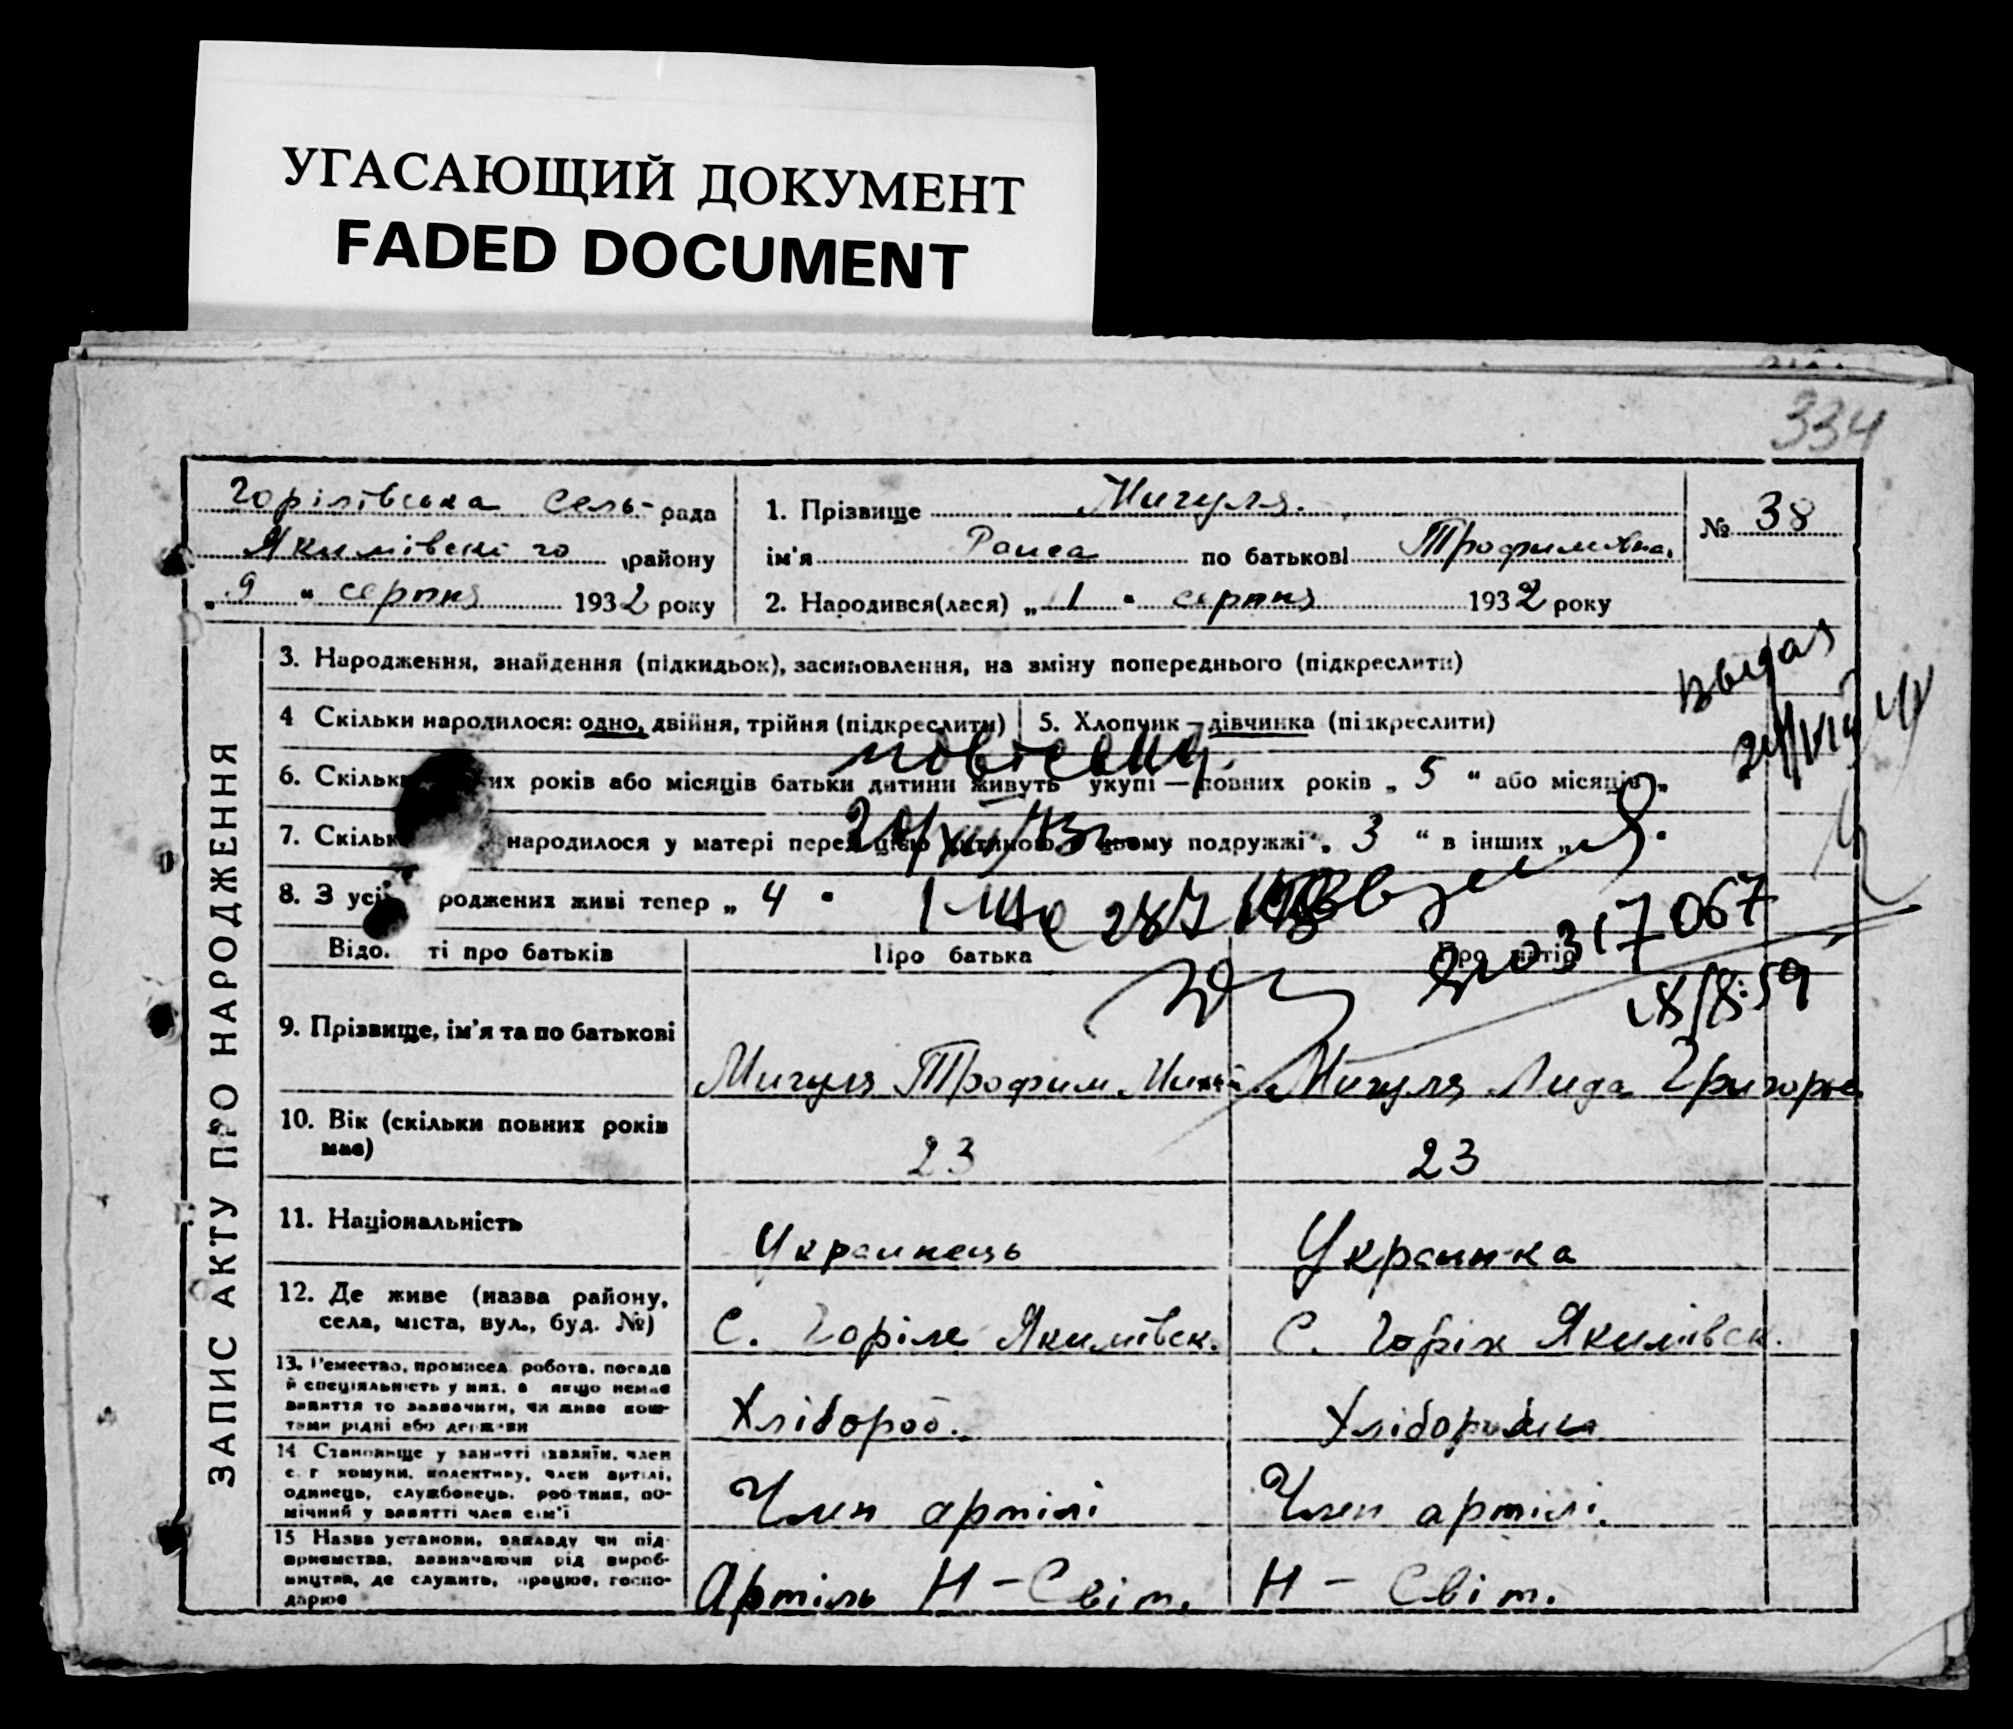 УГАСАЮЩИЙ ДОКУМЕНТ
FADED DOCUMENT
334
Горілівська сель- рада
Якимівського району
„ 9 “ серпня 1932 року
1. Прізвище Мигуля.
ім'я Раиса по батькові Трофимівна.
2. Народився(лася) „ 1 “ серпня 1932 року
№ 38
ЗАПИС АКТУ ПРО НАРОДЖЕННЯ
3. Народження, знайдення (підкидьок), засиновлення, на зміну попереднього (підкреслити)
4 Скільки народилося: одно, двійня, трійня (підкреслити)
5. Хлопчик — дівчинка (підкреслити)
6. років або місяців батьки дитини живуть укупі — повних років „ 5 “ або місяців „
7. народилося у матері перед цією дитиною цьому подружжі „ 3 “ в інших „
8. З роджених живі тепер „ 4 “
317067
Про батька
про батьків
9. Прізвище, ім'я та по батькові
Мигуля Трофим
Мигуля Лида
10. Вік (скільки повних років має)
23
23
11. Національність
Украинець
Украинка
12. Де живе (назва району, села, міста, вул., буд. №)
С. Горіле Якимівськ.
С. Якимівськ.
13. Ремество, промисел, робота, посада й спеціяльність у них, а якщо немає заняття то зазначити, чи живе коштами рідні або держави
Хлібороб.
14 Становище у занятті (хазяїн, член с. г комуни, колективу, член артілі, одинець, службовець, робітник, помічний у занятті член сім'ї
Член артілі
Член артілі.
15 Назва установи, закладу чи підприємства, зазначаючи рід виробництва, де служить, працює, господарює
Артіль Н - Світ.
Н - Світ.